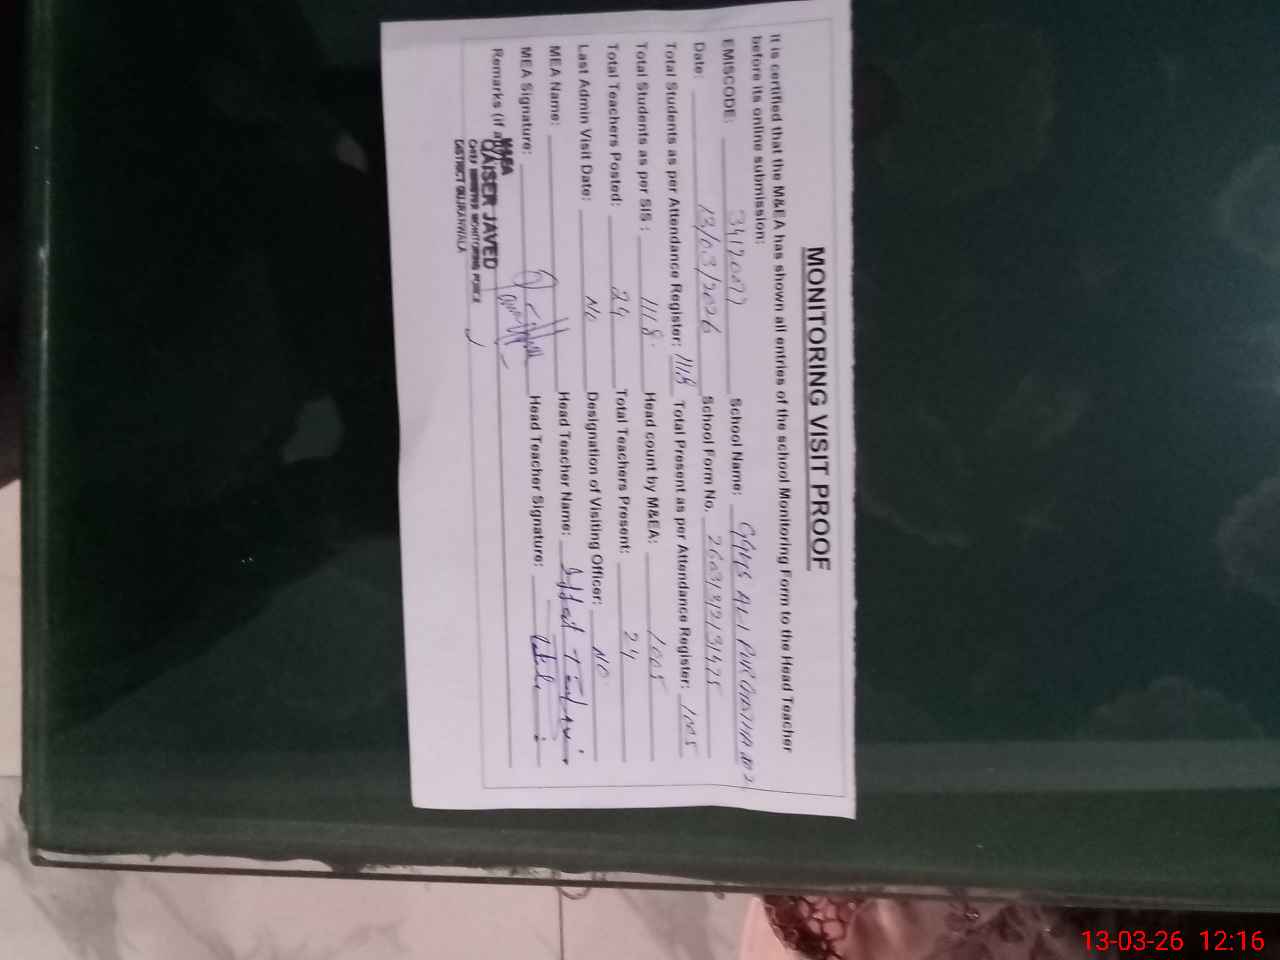 MONITORING VISIT PROOF
It is certified that the M&EA has shown all entries of the school Monitoring Form to the Head Teacher
before its online submission:
EMISCODE: 34120077 School Name: GGHS ALI PUR CHATHA
Date: 13/03/2026 School Form No.
Total Students as per Attendance Register: 1118 Total Present as per Attendance Register: 1005
Total Students as per SIS: 1118 Head count by M&EA: 1005
Total Teachers Posted: 24 Total Teachers Present: 24
Last Admin Visit Date: No Designation of Visiting Officer: NO
MEA Name: Head Teacher Name:
MEA Signature: Head Teacher Signature:
Remarks (if any)
M&EA
QAISER JAVED
CHIEF MINISTER MONITORING FORCE
DISTRICT GUJRANWALA
13-03-26 12:16